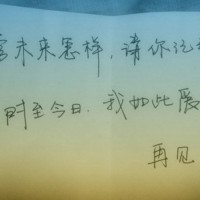 未来怎样，请你记
时至今日，我如此爱
再见